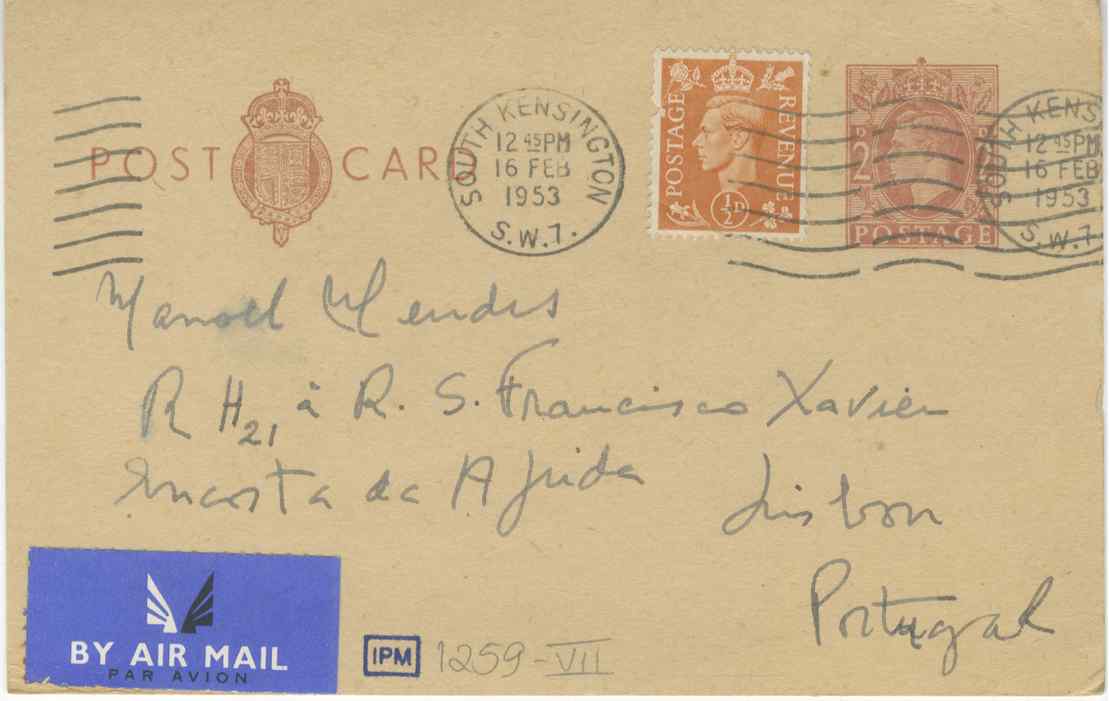 POST CARD
SOUTH KENSINGTON
12 45 PM
16 FEB
1953
S.W.7.
POSTAGE REVENUE
½D
D D
2
POSTAGE
SOUTH KENS
12 45 PM
16 FEB
1953
S.W.7
Manoel Mendes
R H21 à R. S. Francisco Xavier
Encosta da Ajuda Lisbon
Portugal
BY AIR MAIL
PAR AVION
IPM 1259-VII